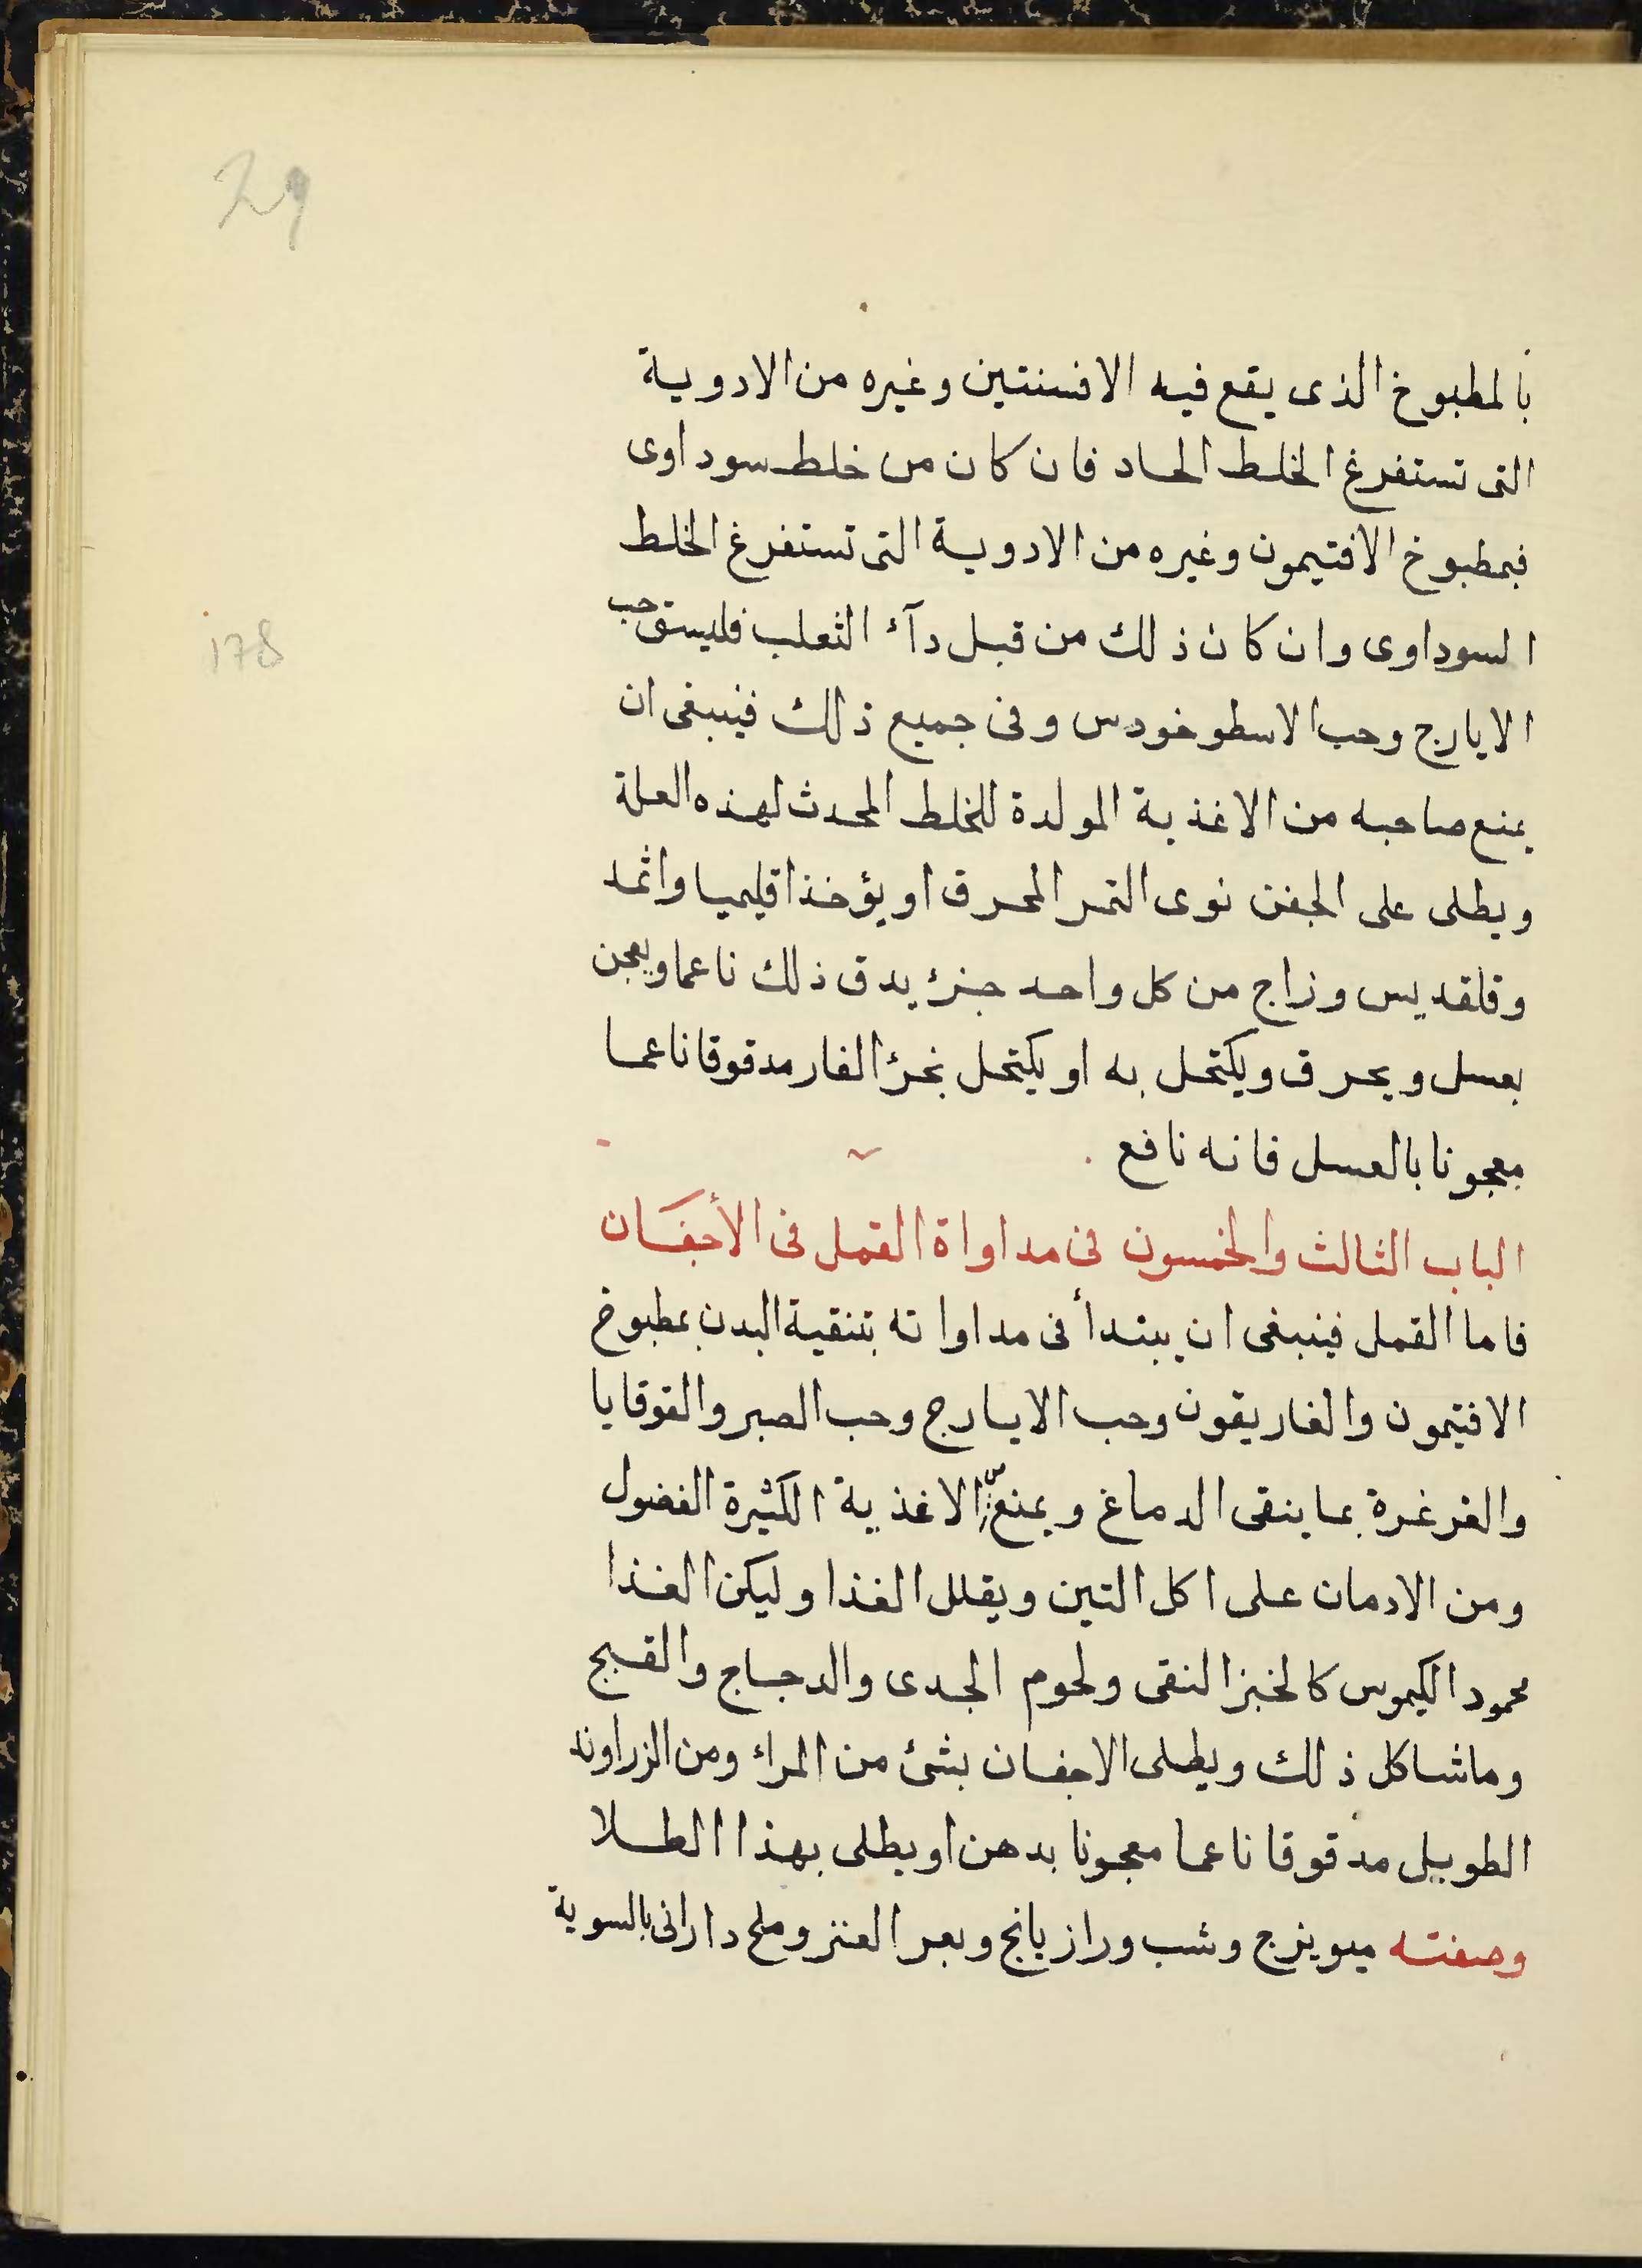 29
بالمطبوخ الذى يقع فيه الافسنتين وغيره من الادوية
التى تستفرغ الخلط الحاد فان كان من خلط سوداوى
فبمطبوخ الافتيمون وغيره من الادوية التى تستفرغ الخلط
السوداوى وان كان ذلك من قبل دآء الثعلب فليسق حب
178
الايارج وحب الاسطوخودس وفى جميع ذلك فينبغى ان
يمنع صاحبه من الاغذية المولدة للخلط المحدث لهذه العلة
ويطلى على الجفن نوى التمر المحرق او يؤخذ اقليميا واثمد
وقلقديس وزاج من كل واحد جزء يدق ذلك ناعما ويعجن
بعسل ويحرق ويكتحل به او يكتحل بخرؤ الفار مدقوقا ناعما
معجونا بالعسل فانه نافع
الباب الثالث والخمسون فى مداواة القمل فى الأجفان
فاما القمل فينبغى ان يبتدأ فى مداواته بتنقية البدن بمطبوخ
الافتيمون والغاريقون وحب الايارج وحب الصبر والقوقايا
والغرغرة بما ينقى الدماغ ويمنع من الاغذية الكثيرة الفضول
ومن الادمان على اكل التين ويقلل الغذا وليكن الغذا
محمود الكيموس كالخبز النقى ولحوم الجدى والدجاج والقبج
وماشاكل ذلك ويطلى الاجفان بشئ من المراء ومن الزراوند
الطويل مدقوقا ناعما معجونا بدهن او يطلى بهذا الطلا
وصفته ميويزج وشب ورازيانج وبعر العنز وملح دارانى بالسوية